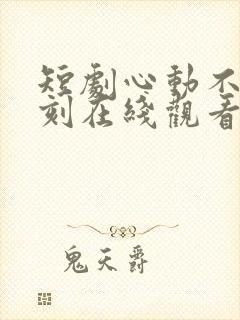 短劇心動不
刻在綫觀看
鬼天爵